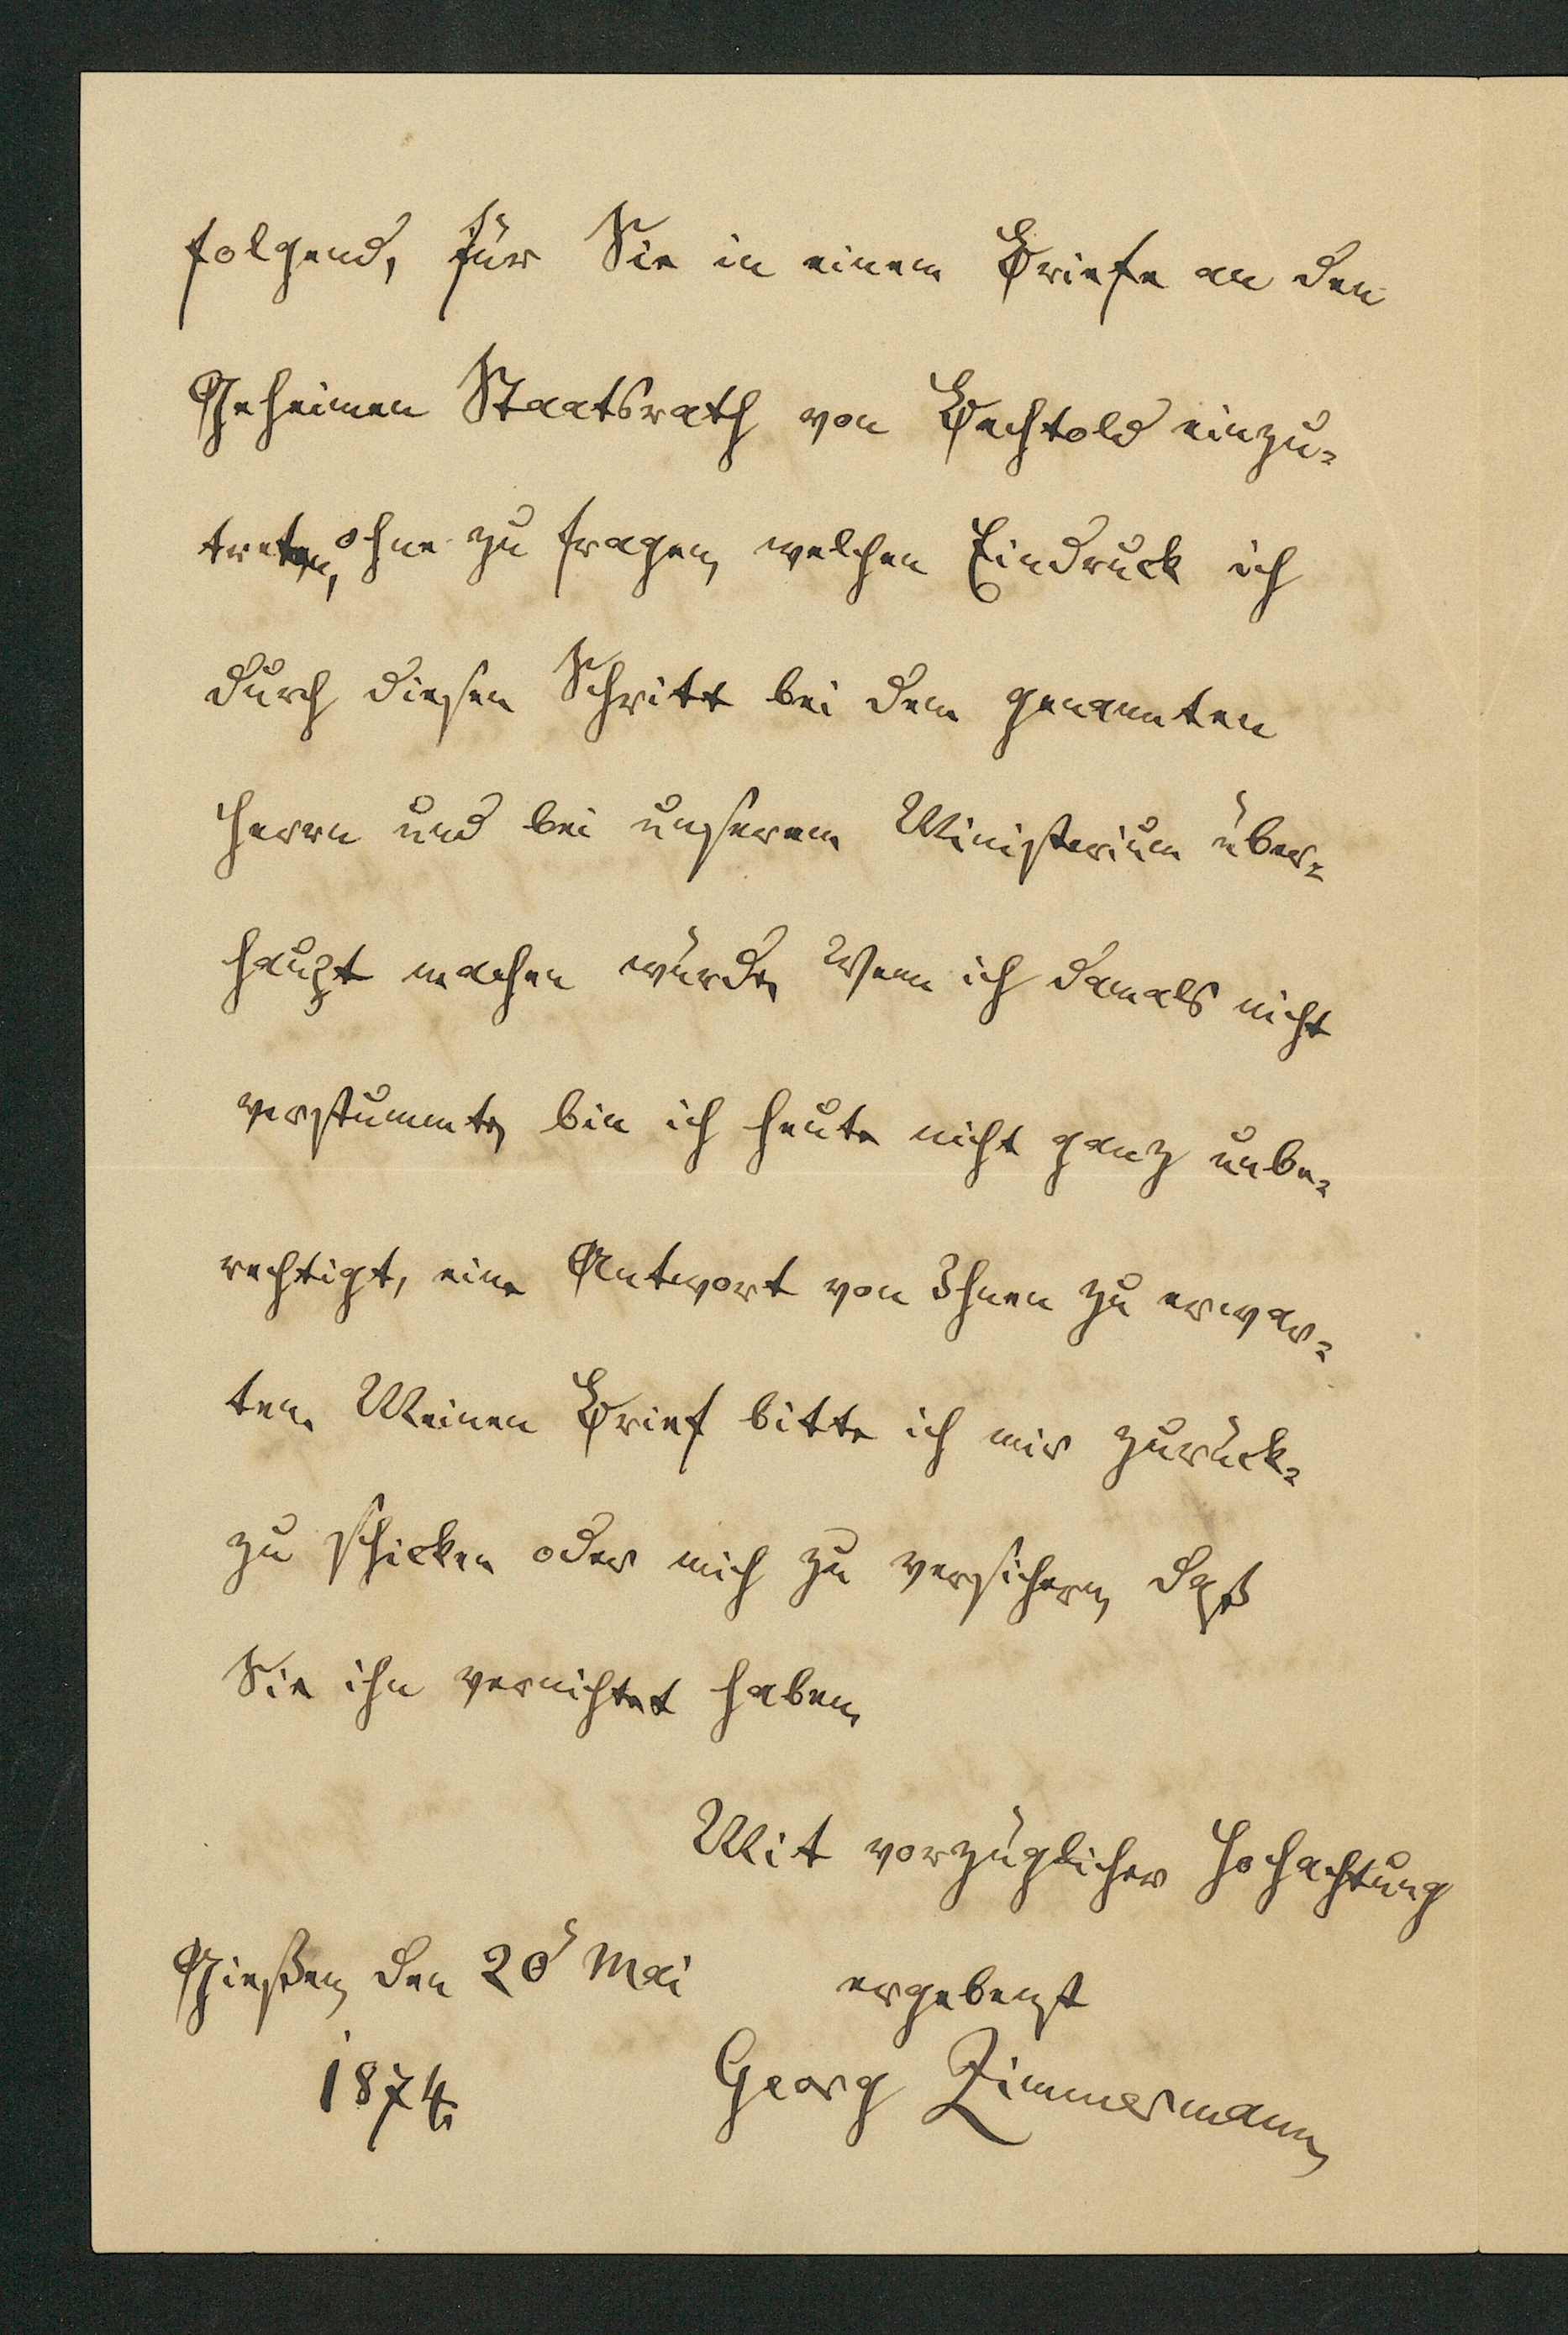 folgend, für Sie in einem Briefe an den
Geheimen Staatsrath von Bechtold einzu-
treten, ohne zu fragen, welchen Eindruck ich
durch diesen Schritt bei dem genannten
Herrn und bei unserem Ministerium über-
haupt machen würde. Wenn ich damals nicht
verstummte, bin ich heute nicht ganz unbe-
rechtigt, eine Antwort von Ihnen zu erwar-
ten. Meinen Brief bitte ich mir zurück-
zu schicken oder mich zu versichern, daß
Sie ihn vernichtet haben.
Mit vorzüglicher Hochachtung
Gießen, den 20 Mai ergebenst
1874. Georg Zimmermann